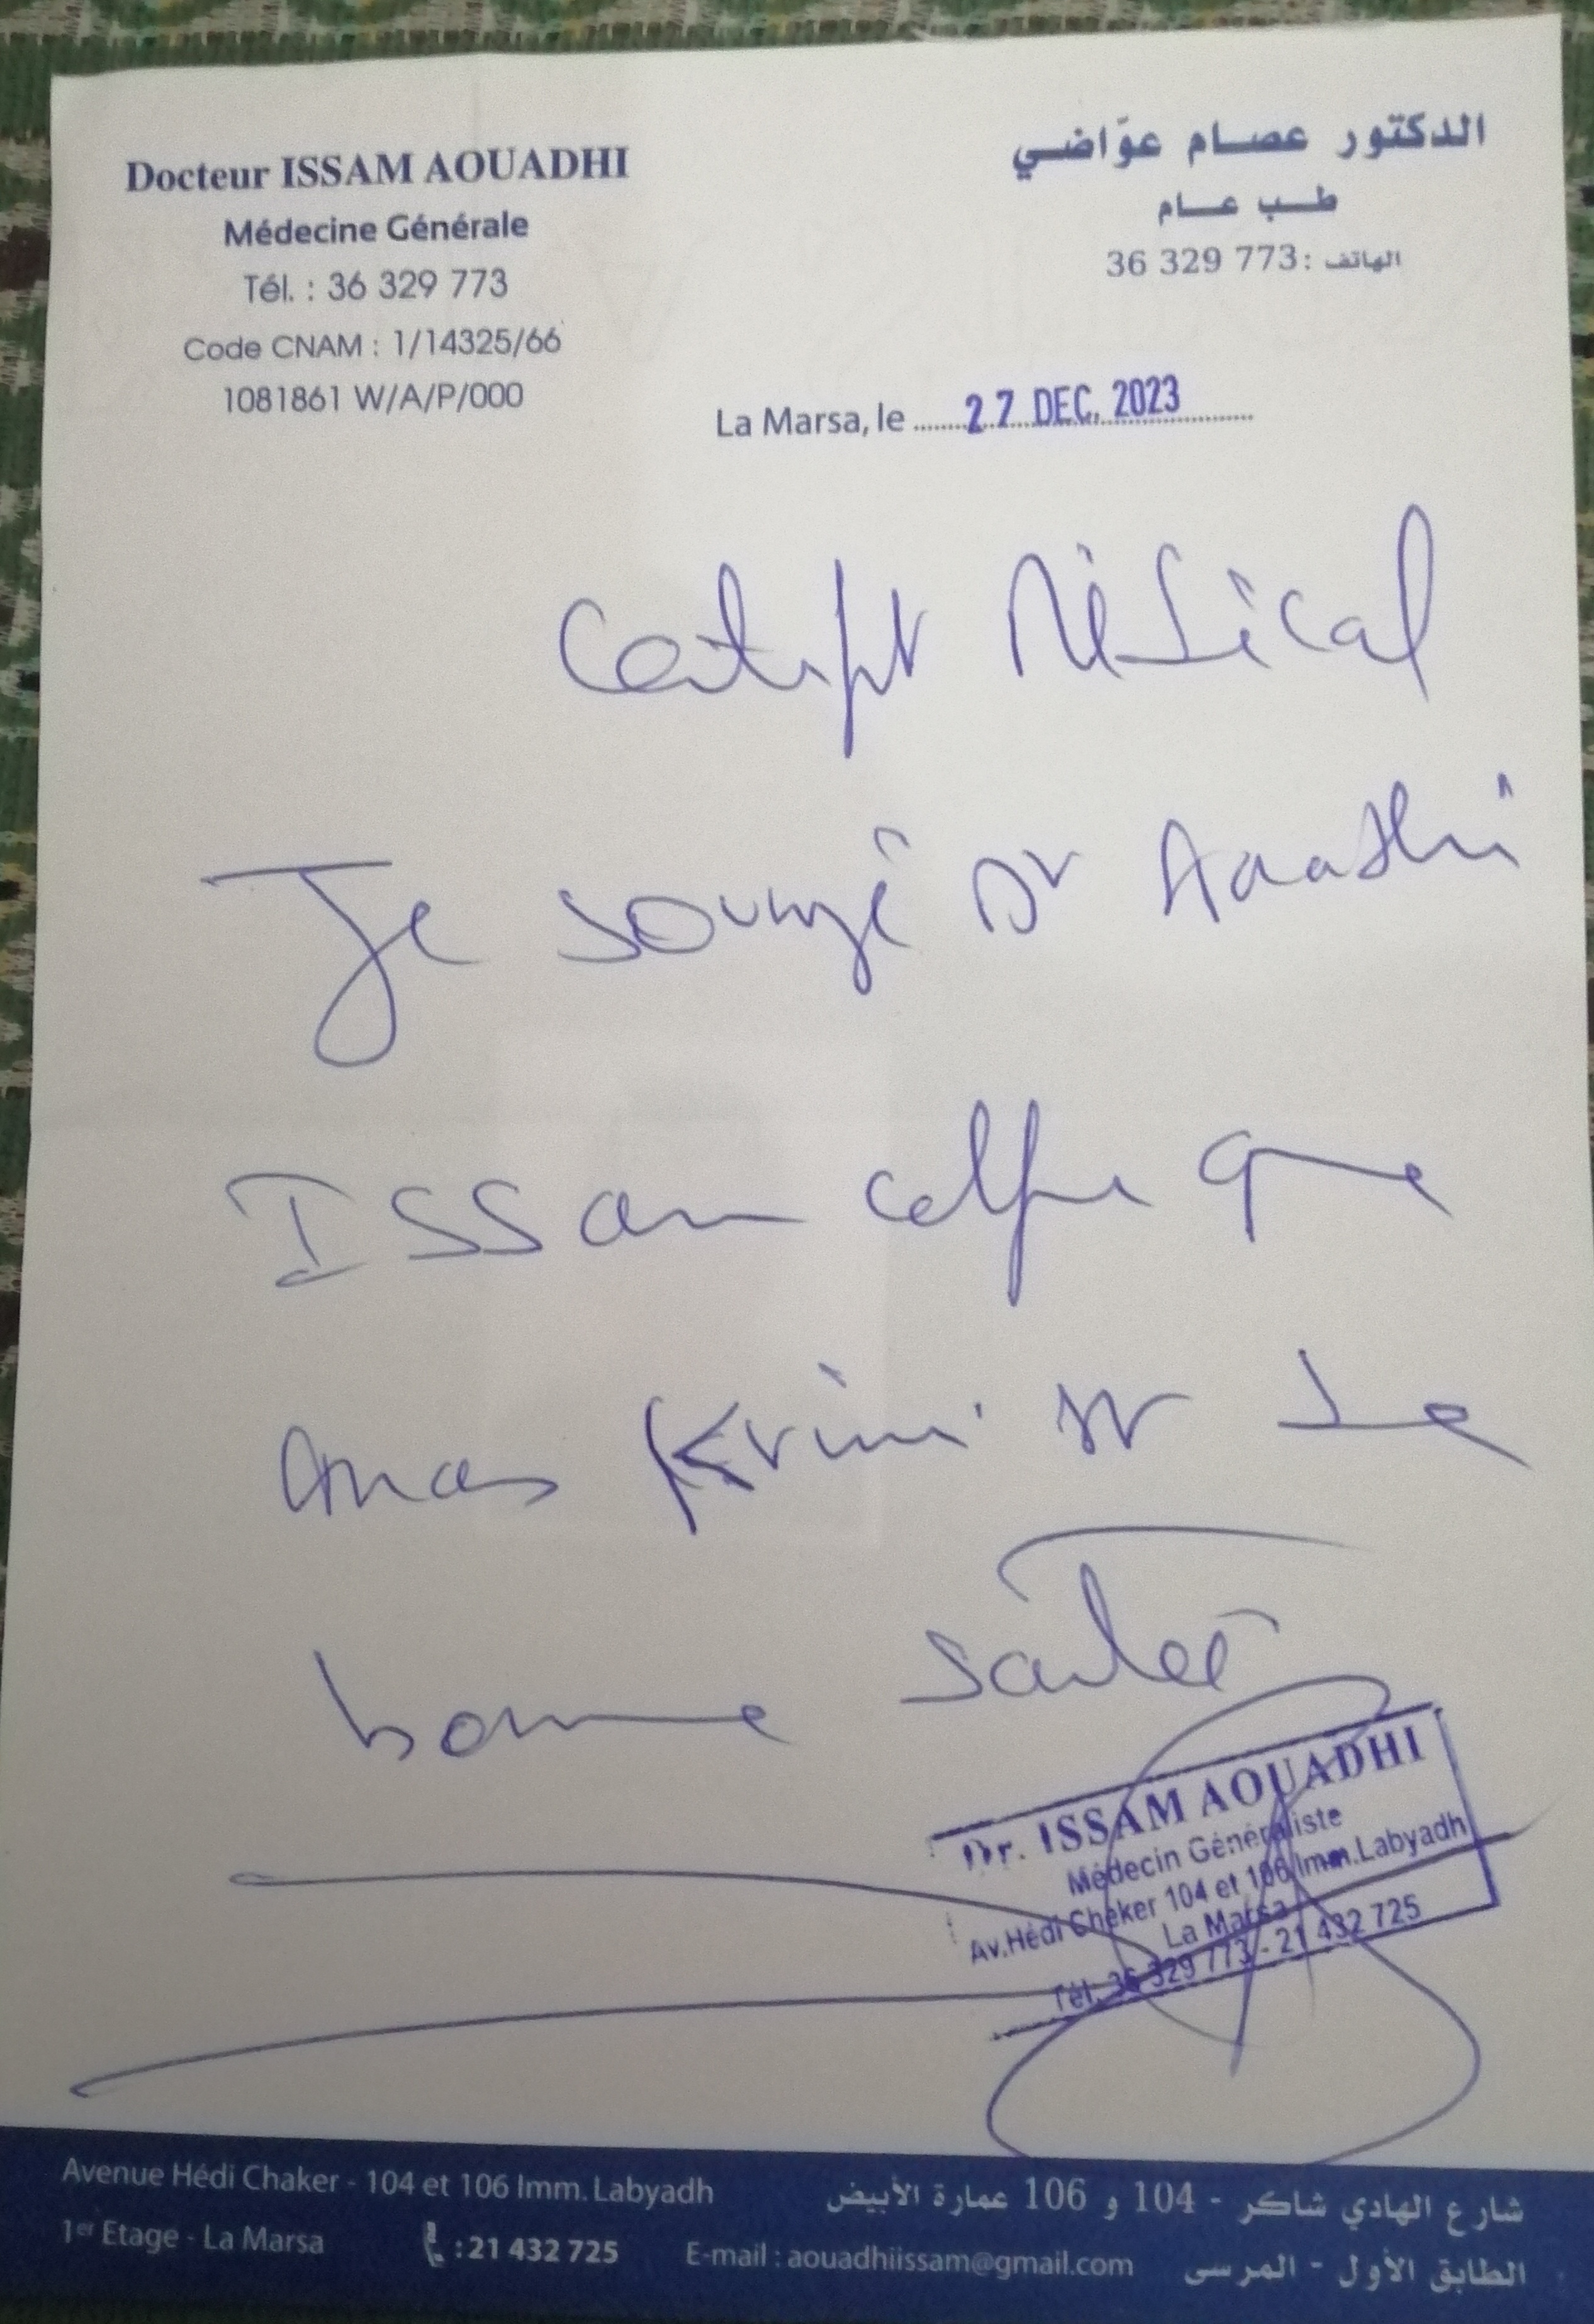 Docteur ISSAM AOUADHI
Médecine Générale
Tél. : 36 329 773
Code CNAM : 1/14325/66
1081861 W/A/P/000
الدكتور عصام عوّاضي
طب عام
الهاتف : 36 329 773
La Marsa, le ........27 DEC. 2023........
Certificat Médical
Je soussigné Dr Aouadhi
Issam certifie que
Anas Krimi est de
bonne Santé
Dr. ISSAM AOUADHI
Médecin Généraliste
Av.Hédi Cheker 104 et 106 Imm.Labyadh
La Marsa
Tél. 36 329 773 - 21 432 725
Avenue Hédi Chaker - 104 et 106 Imm. Labyadh
1er Etage - La Marsa : 21 432 725 E-mail : aouadhiissam@gmail.com
شارع الهادي شاكر - 104 و 106 عمارة الأبيض
الطابق الأول - المرسى